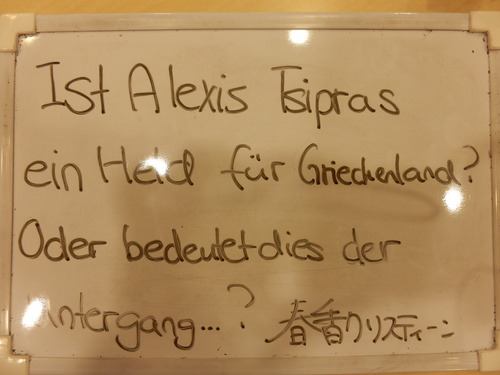 Ist Alexis Tsipras
ein Held für Griechenland?
Oder bedeutet dies der
Untergang...? 春香クリスティーン